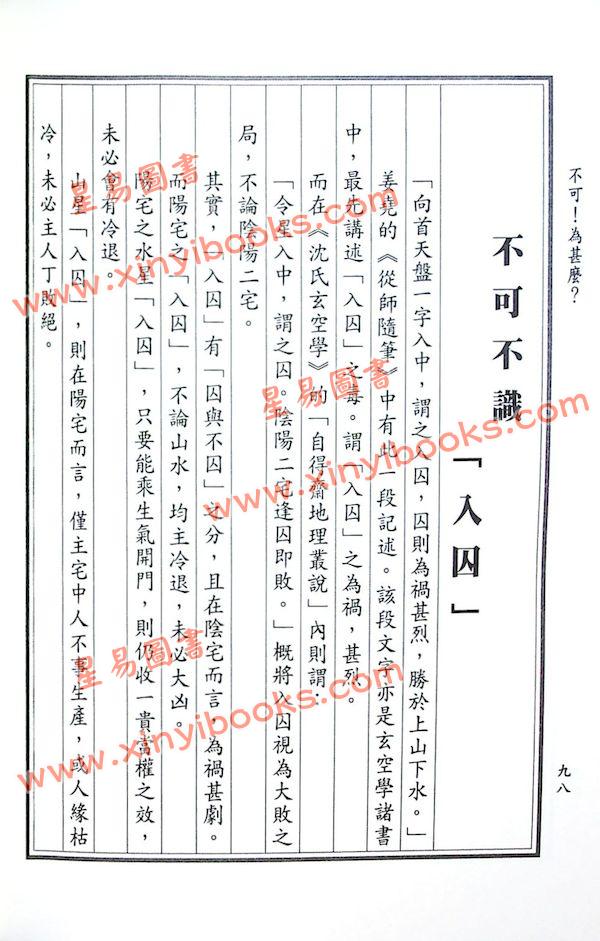 不可！為甚麼？
九八
不可不識「入囚」
「向首天盤一字入中，謂之入囚，囚則為禍甚烈，勝於上山下水。」
姜堯的《從師隨筆》中有此一段記述。該段文字亦是玄空學諸書
中，最先講述「入囚」之毒。謂「入囚」之為禍，甚烈。
而在《沈氏玄空學》的「自得齋地理叢說」內則謂：
「令星入中，謂之囚。陰陽二宅逢囚即敗。」概將入囚視為大敗之
局，不論陰陽二宅。
其實，「入囚」有「囚與不囚」之分，且在陰宅而言，為禍甚劇。
而陽宅之「入囚」，不論山水，均主冷退，未必大凶。
陽宅之水星「入囚」，只要能乘生氣開門，則仍收一貴當權之效，
未必會有冷退。
山星「入囚」，則在陽宅而言，僅主宅中人不事生產，或人緣枯
冷，未必主人丁敗絕。
星易圖書
www.xinyibooks.com
星易圖書
www.xinyibooks.com
星易圖書
www.xinyibooks.com